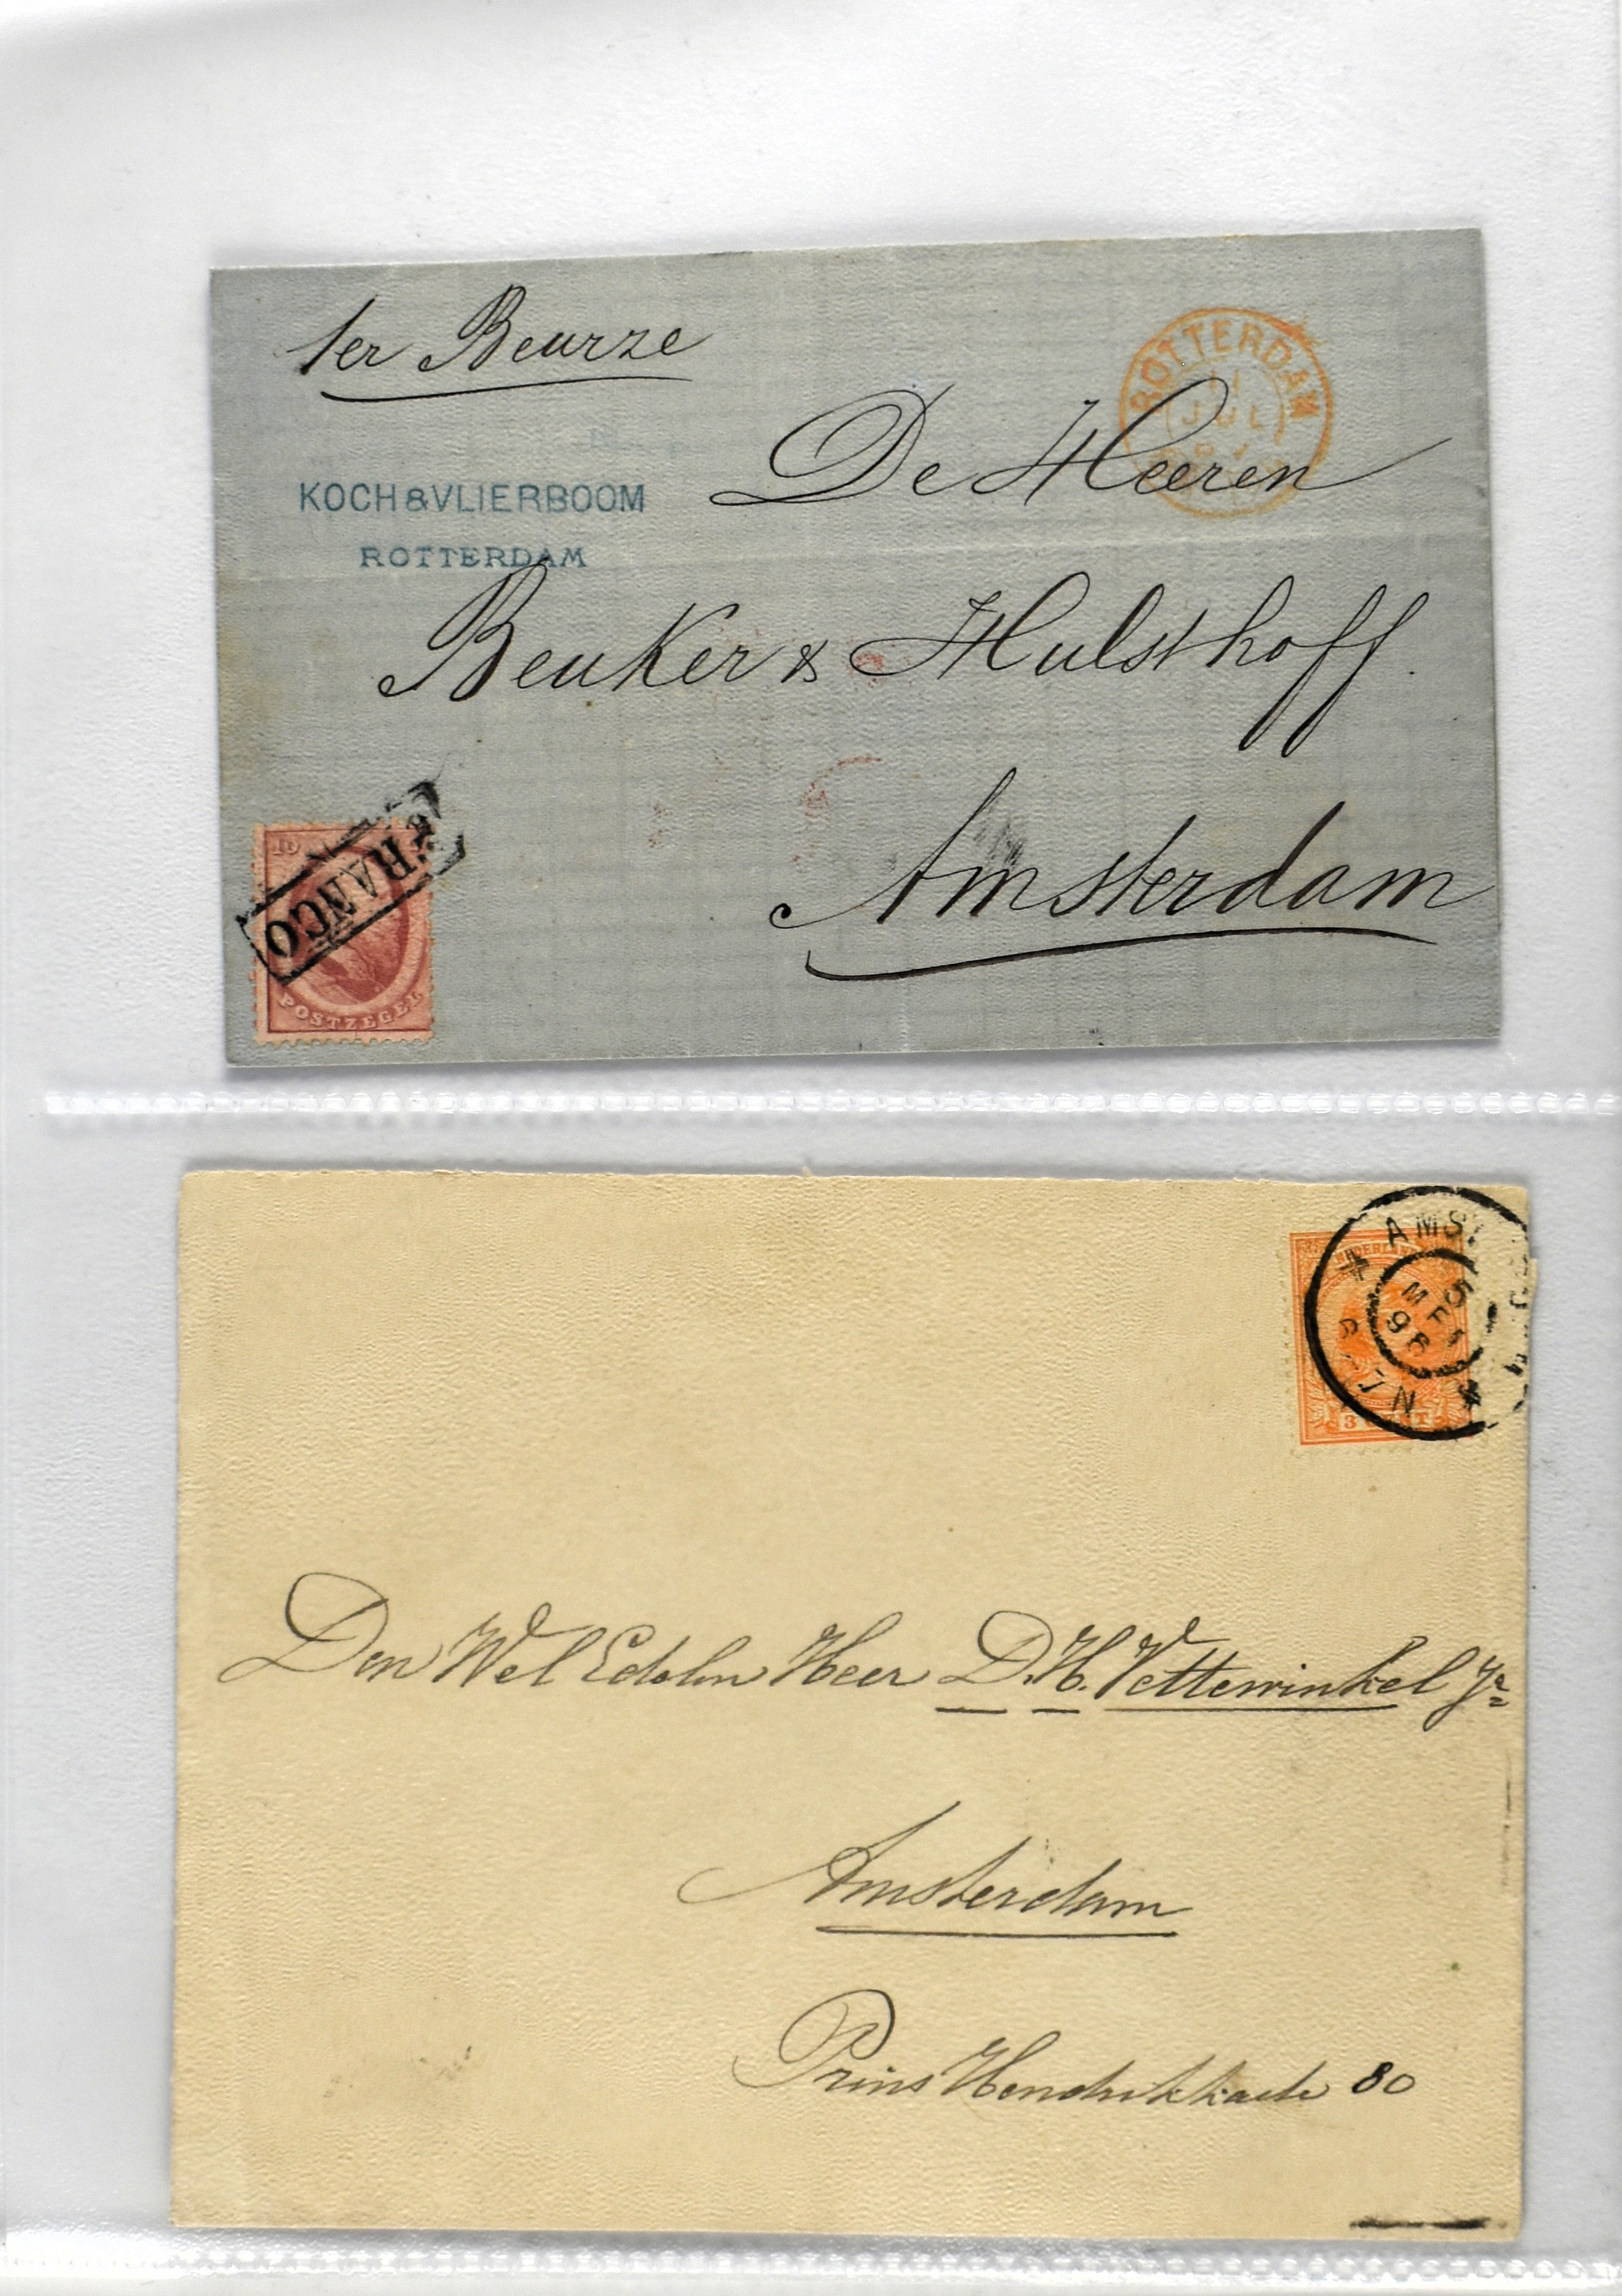 1er Beurze
ROTTERDAM
11
JUL
KOCH & VLIERBOOM
ROTTERDAM
De Heeren
Beuker & Hulsthoff.
Amsterdam
10
FRANCO
POSTZEGEL
NEDERLAND
AMS
5
MEI
96
N
3 CENT
Den Wel Edelen Heer D. H. Vettewinkel Jr
Amsterdam
Prins Hendrikkade 80